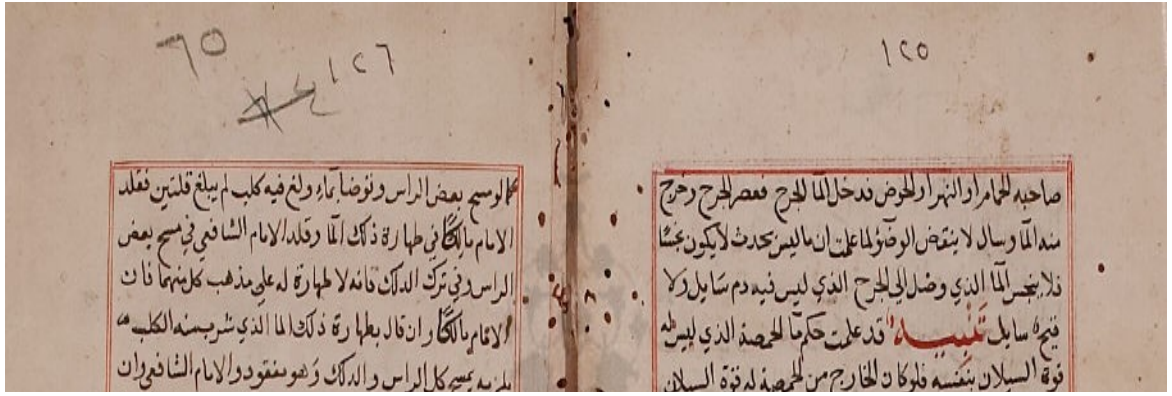 ١٢٥
صاحبه الحمام او النهر او الحوض فدخل الما الجرح فعصر الجرح وخرج
منه الما وسال لا ينقض الوضؤ لما علمت ان ما ليس بحدث لا يكون نجسًا
فلا ينجس الما الذي وصل الي الجرح الذي ليس فيه دم سايل ولا
قيح سايل تنبيه قد علمت حكم ما الحمصة الذي ليس له
قوة السيلان بنفسه فلو كان الخارج من الحمصة له قوة السيلان
٦٥
١٢٦
لو مسح بعض الراس وتوضا بماء ولغ فيه كلب لم يبلغ قلتين فقلد
الامام مالكًا في طهارة ذلك الما وقلد الامام الشافعي في مسح بعض
الراس وفي ترك الدلك فانه لا طهارة له علي مذهب كل منهما فان
الامام مالكًا وان قال بطهارة ذلك الما الذي شرب منه الكلب
يلزمه بمسح كل الراس والدلك وهو مفقود والامام الشافعي وان